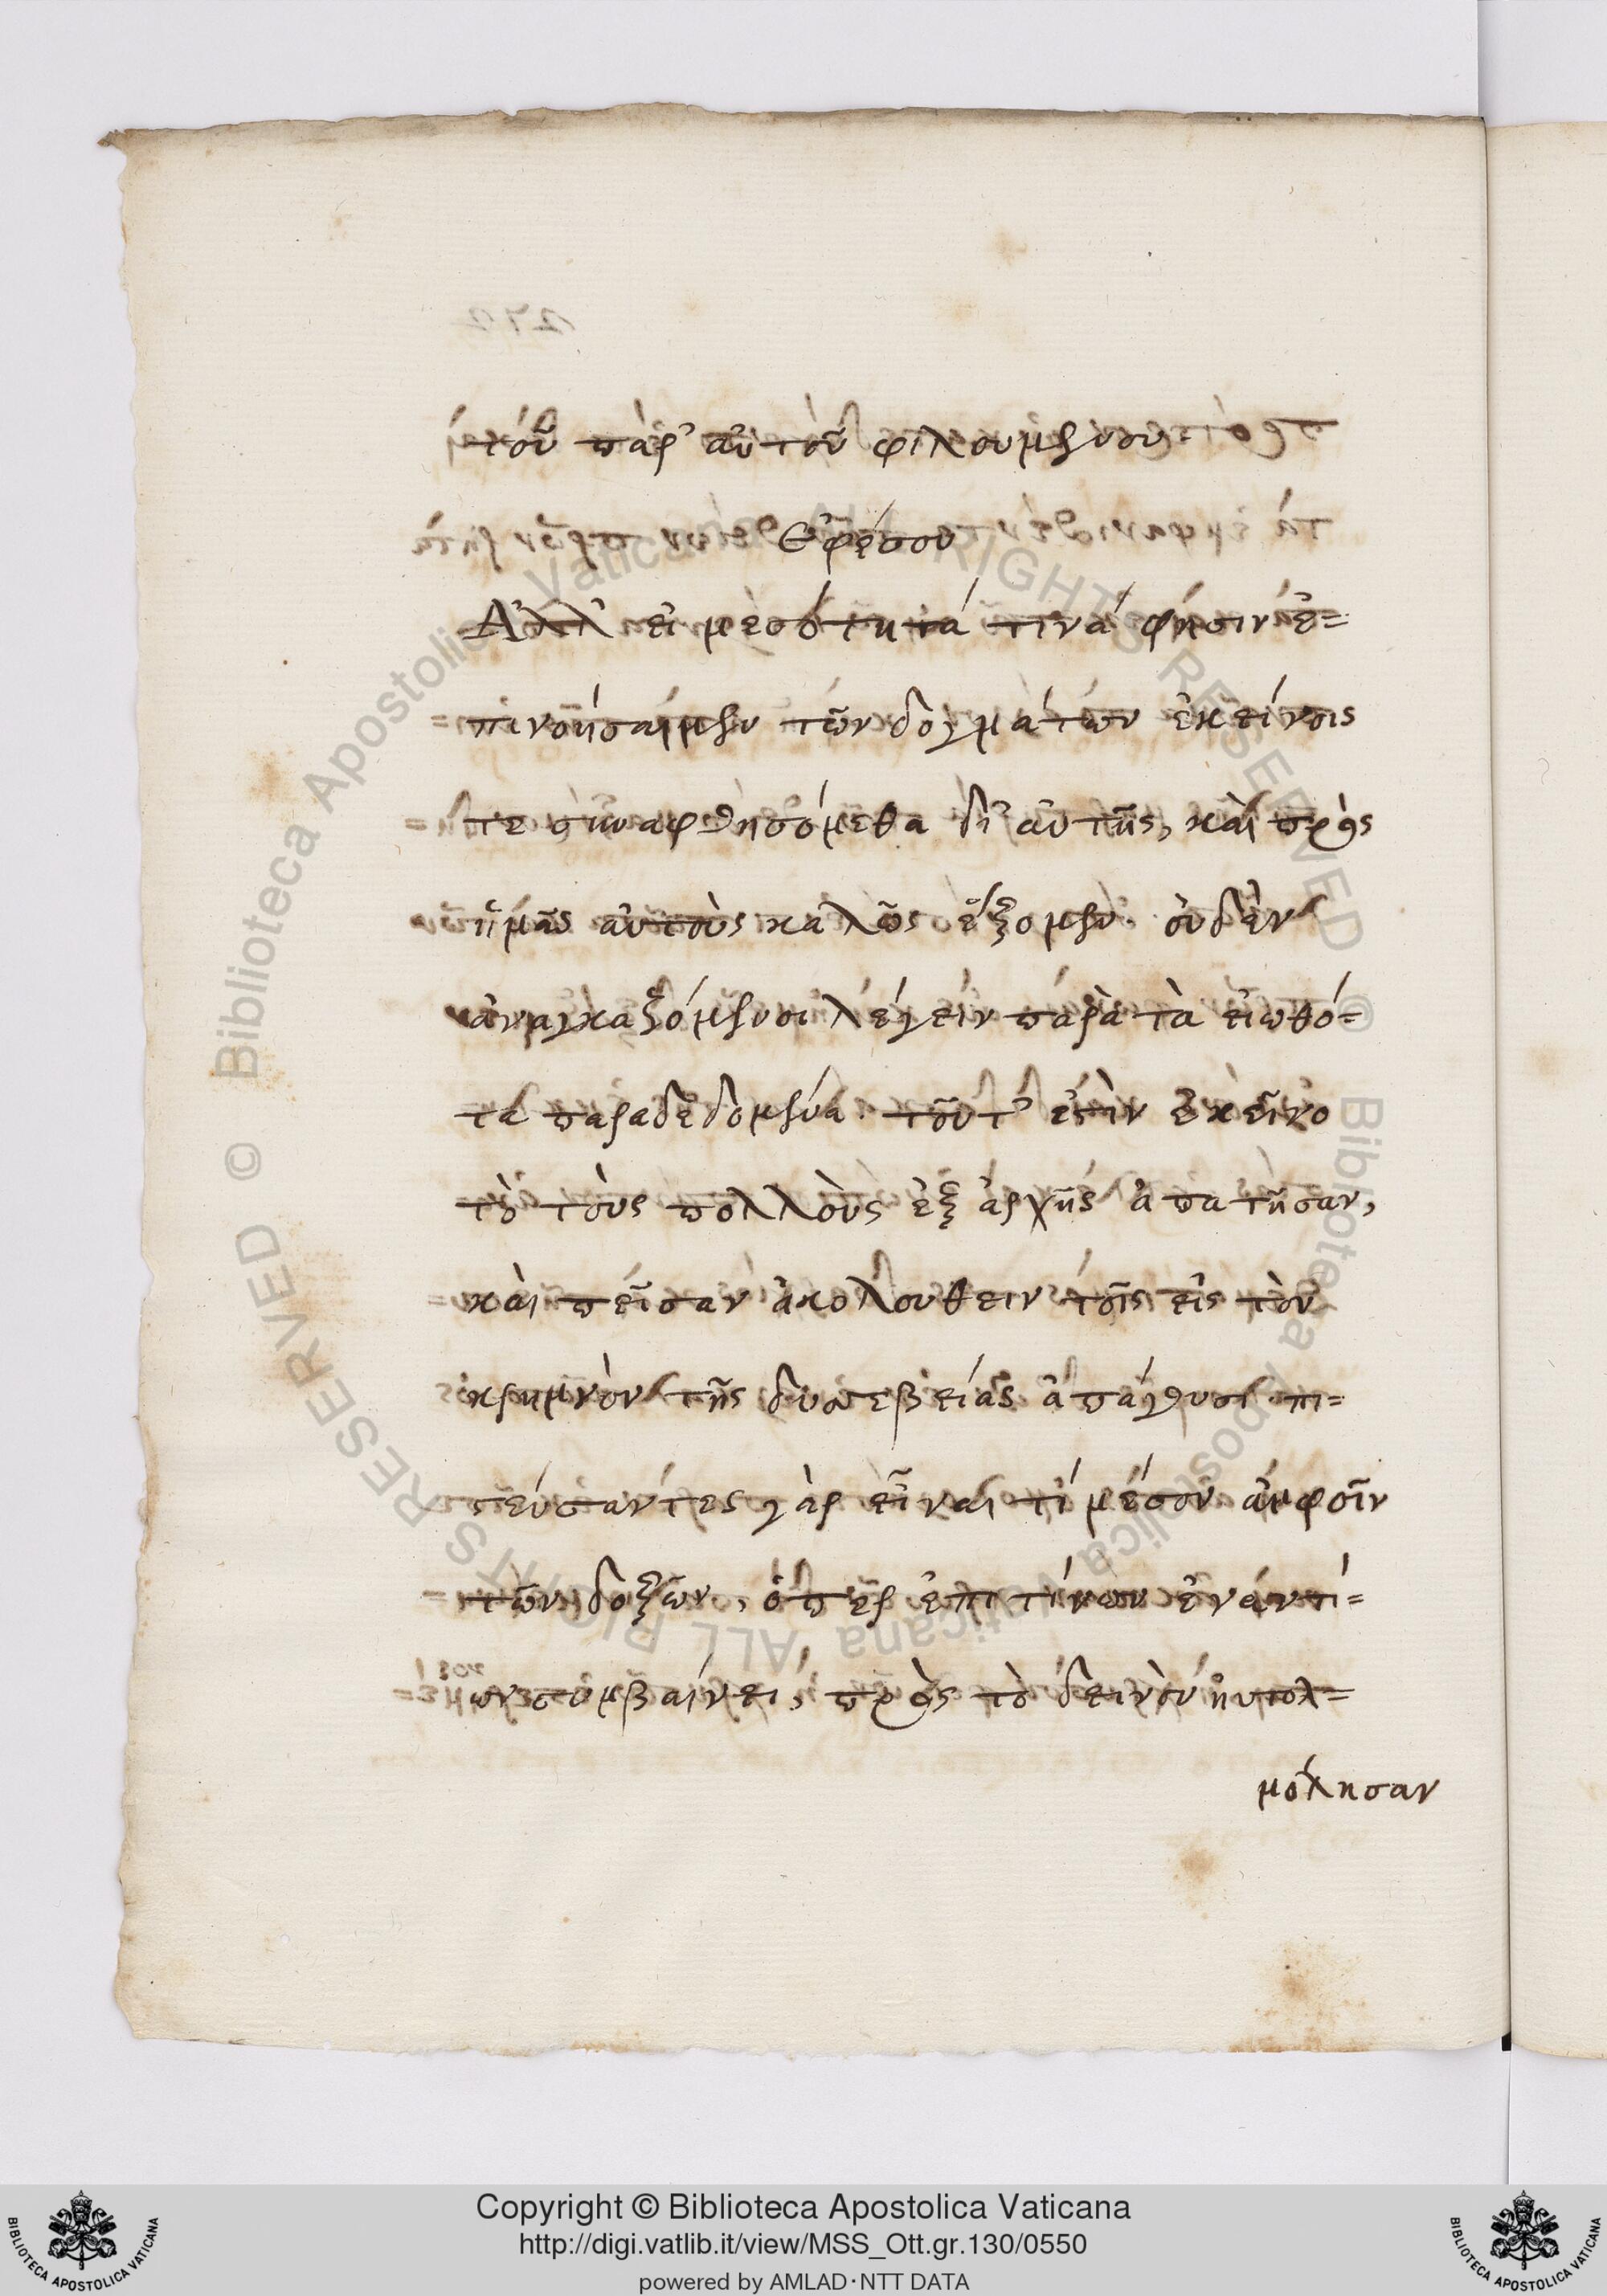 τοῦ παρ' αὐτοῦ φιλουμένου.
Ἐφέσου
Ἀλλ' εἰ μεσότητά τινά φησιν ἐ=
πινοήσαιμεν τῶν δογμάτων ἐκείνοις
τε συναφθησόμεθα δι' αὐτῆς, καὶ πρὸς
ἡμᾶς αὐτοὺς καλῶς ἕξομεν. οὐδὲν
ἀναγκαζόμενοι λέγειν παρὰ τὰ εἰωθό=
τα παραδεδομένα. τοῦτ' ἐστὶν ἐκεῖνο
τὸ τοὺς πολλοὺς ἐξ ἀρχῆς ἀπατῆσαν,
καὶ πεῖσαν ἀκολουθειν τοῖς εἰς τὸν
κρημνὸν τῆς δυσσεβείας ἀπάγουσι. πι=
στεύσαντες γὰρ εἶναί τι μέσον ἀμφοῖν
τῶν δοξῶν, ὅπερ ἐπι τίνων ἐναντί=
ων συμβαίνει, πρὸς τὸ δεινὸν ηυτολ=
μόλησαν
Copyright © Biblioteca Apostolica Vaticana
http://digi.vatlib.it/view/MSS_Ott.gr.130/0550
powered by AMLAD·NTT DATA
BIBLIOTECA APOSTOLICA VATICANA
BIBLIOTECA APOSTOLICA VATICANA
© Biblioteca Apostolica Vaticana ALL RIGHTS RESERVED
© Biblioteca Apostolica Vaticana ALL RIGHTS RESERVED